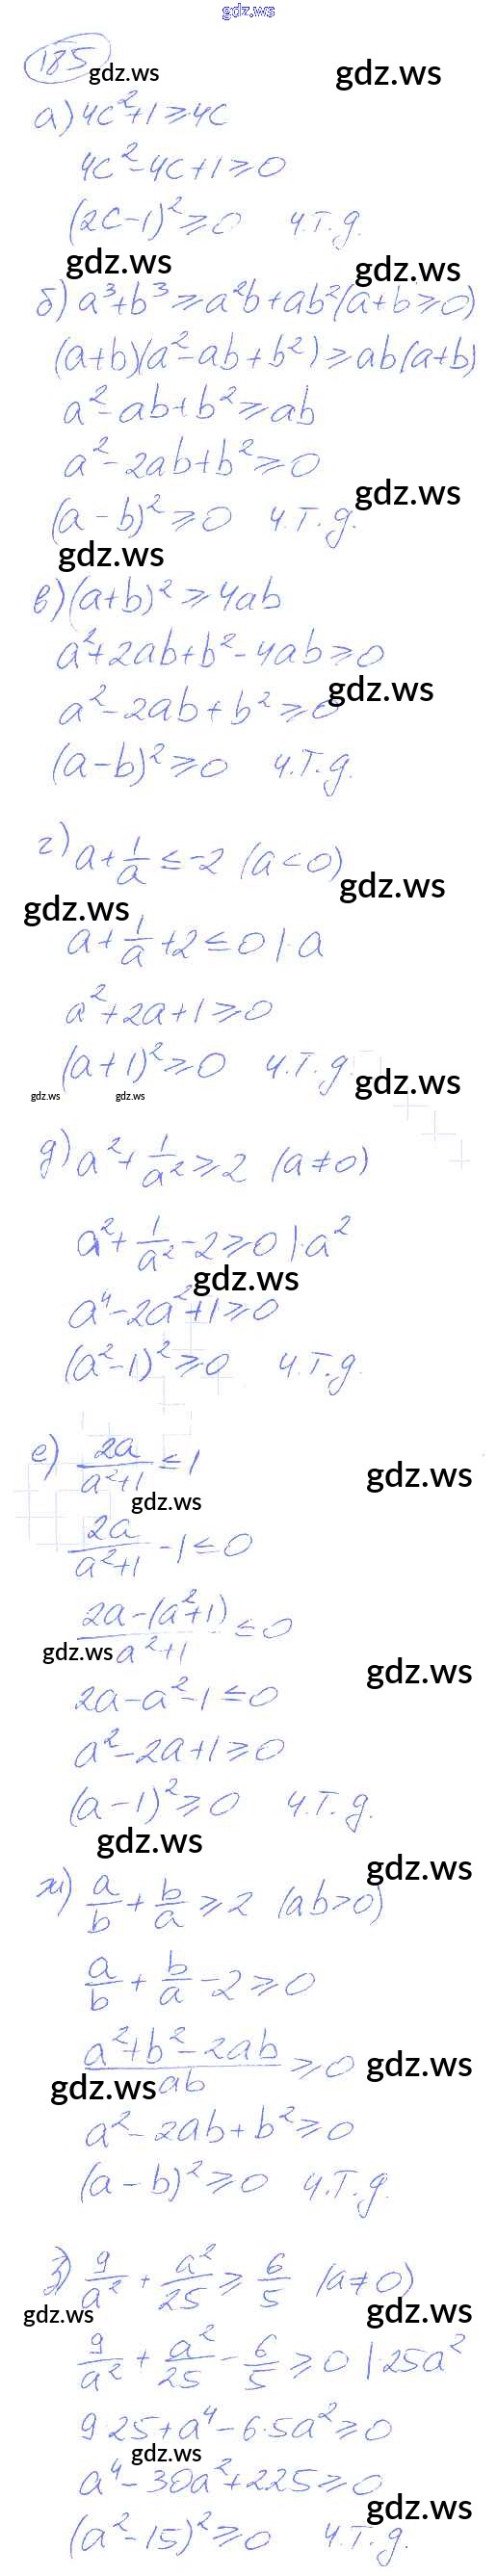 gdz.ws
185
gdz.ws gdz.ws
а) 4c²+1 ≥ 4c
4c²-4c+1 ≥ 0
(2c-1)² ≥ 0 ч.т.д.
gdz.ws gdz.ws
б) a³+b³ ≥ a²b+ab² (a+b ≥ 0)
(a+b)(a²-ab+b²) ≥ ab(a+b)
a²-ab+b² ≥ ab
a²-2ab+b² ≥ 0
gdz.ws
(a-b)² ≥ 0 ч.т.д.
gdz.ws
в) (a+b)² ≥ 4ab
a²+2ab+b²-4ab ≥ 0
gdz.ws
a²-2ab+b² ≥ 0
(a-b)² ≥ 0 ч.т.д.
г) a+1/a ≤ -2 (a<0)
gdz.ws
gdz.ws
a+1/a+2 ≤ 0 |·a
a²+2a+1 ≥ 0
(a+1)² ≥ 0 ч.т.д.
gdz.ws
gdz.ws gdz.ws
д) a²+1/a² ≥ 2 (a≠0)
a²+1/a²-2 ≥ 0 |·a²
gdz.ws
a⁴-2a²+1 ≥ 0
(a²-1)² ≥ 0 ч.т.д.
е) 2a/(a²+1) ≤ 1
gdz.ws
gdz.ws
2a/(a²+1) -1 ≤ 0
(2a-(a²+1))/(a²+1) ≤ 0
gdz.ws
gdz.ws
2a-a²-1 ≤ 0
a²-2a+1 ≥ 0
(a-1)² ≥ 0 ч.т.д.
gdz.ws
gdz.ws
ж) a/b + b/a ≥ 2 (ab>0)
a/b + b/a -2 ≥ 0
(a²+b²-2ab)/ab ≥ 0
gdz.ws
gdz.ws
a²-2ab+b² ≥ 0
(a-b)² ≥ 0 ч.т.д.
з) 9/a² + a²/25 ≥ 6/5 (a≠0)
gdz.ws gdz.ws
9/a² + a²/25 - 6/5 ≥ 0 |·25a²
9·25+a⁴-6·5a² ≥ 0
gdz.ws
a⁴-30a²+225 ≥ 0
gdz.ws
(a²-15)² ≥ 0 ч.т.д.